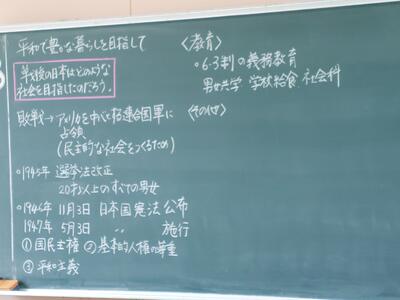 平和で豊かな暮らしを目指して
単戦後の日本はどのような
社会を目指したのだろう。
敗戦→アメリカを中心とする連合国軍に
占領
(民主的な社会をつくるため)
○1945年 選挙法改正
20才以上のすべての男女
○1946年 11月3日 日本国憲法公布
1947年 5月3日 〃 施行
①国民主権 ②基本的人権の尊重
③平和主義
〈教育〉
○6・3制の義務教育
男女共学 学校給食 社会科
〈その他〉